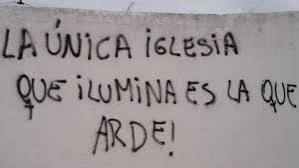 LA ÚNICA iGLESIA
QUE iLUMINA ES LA QUE
ARDE!